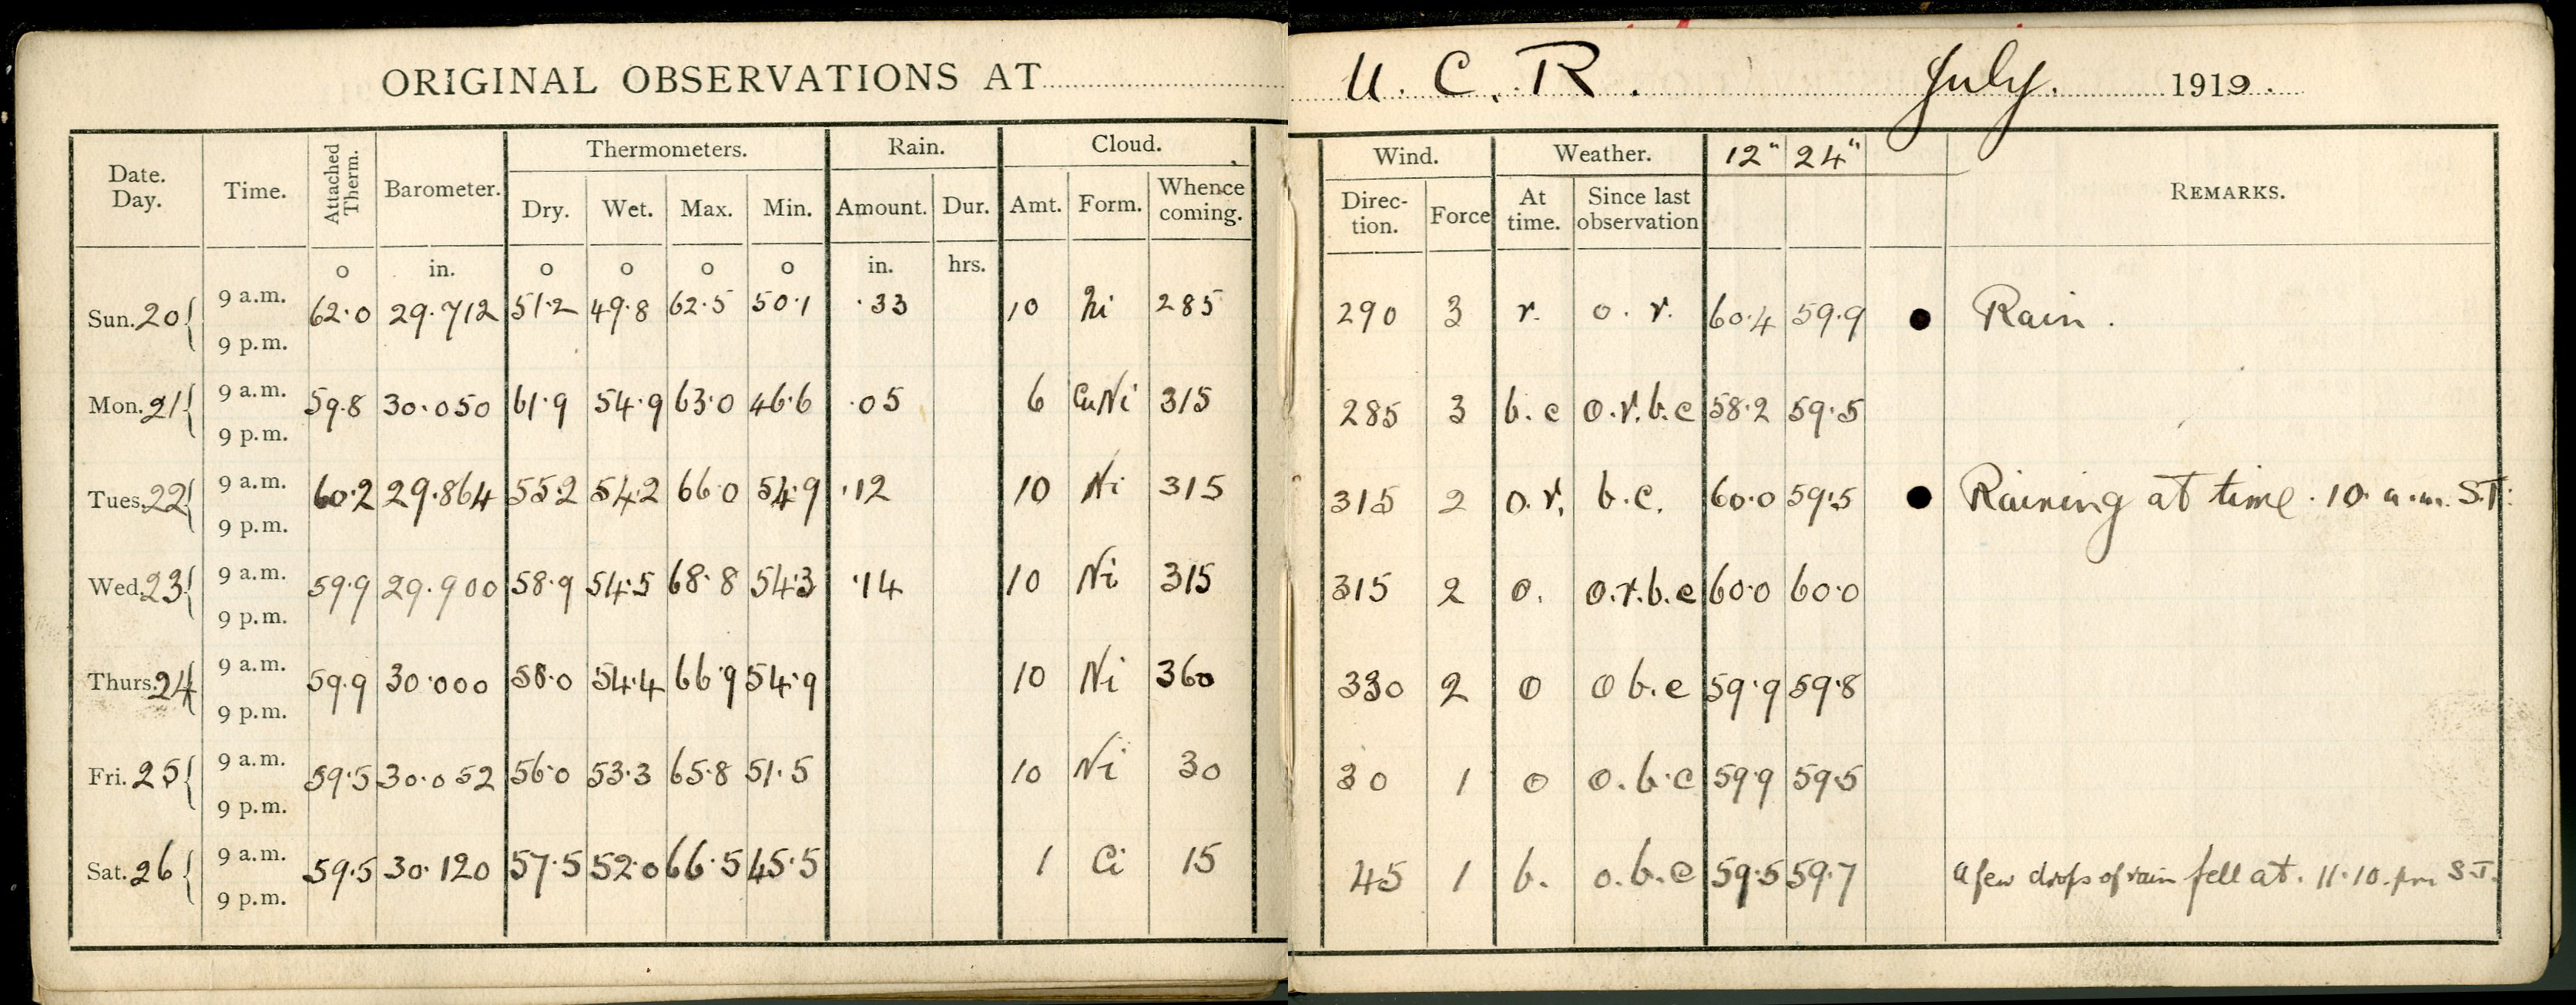 ORIGINAL OBSERVATIONS AT U. C. R. July. 1919.
Date. Day. Time. Attached Therm. Barometer. Thermometers. Dry. Wet. Max. Min. Rain. Amount. Dur. Cloud. Amt. Form. Whence coming. Wind. Direc-tion. Force Weather. At time. Since last observation 12" 24" REMARKS.
o in. o o o o in. hrs.
Sun. 20 9 a.m. 62.0 29.712 51.2 49.8 62.5 50.1 .33 10 Ni 285 290 3 r. o. r. 60.4 59.9 ● Rain.
9 p.m.
Mon. 21 9 a.m. 59.8 30.050 61.9 54.9 63.0 46.6 .05 6 CuNi 315 285 3 b.c o.r.b.c 58.2 59.5
9 p.m.
Tues. 22 9 a.m. 60.2 29.864 55.2 54.2 66.0 54.9 .12 10 Ni 315 315 2 o.r. b.c. 60.0 59.5 ● Raining at time. 10 a.m. S.T.
9 p.m.
Wed. 23 9 a.m. 59.9 29.900 58.9 54.5 68.8 54.3 .14 10 Ni 315 315 2 o. o.r.b.c 60.0 60.0
9 p.m.
Thurs. 24 9 a.m. 59.9 30.000 58.0 54.4 66.9 54.9 10 Ni 360 330 2 o o b.c 59.9 59.8
9 p.m.
Fri. 25 9 a.m. 59.5 30.052 56.0 53.3 65.8 51.5 10 Ni 30 30 1 o o.b.c 59.9 59.5
9 p.m.
Sat. 26 9 a.m. 59.5 30.120 57.5 52.0 66.5 45.5 1 Ci 15 45 1 b. o.b.c 59.5 59.7 a few drops of rain fell at. 11.10.pm S.T.
9 p.m.